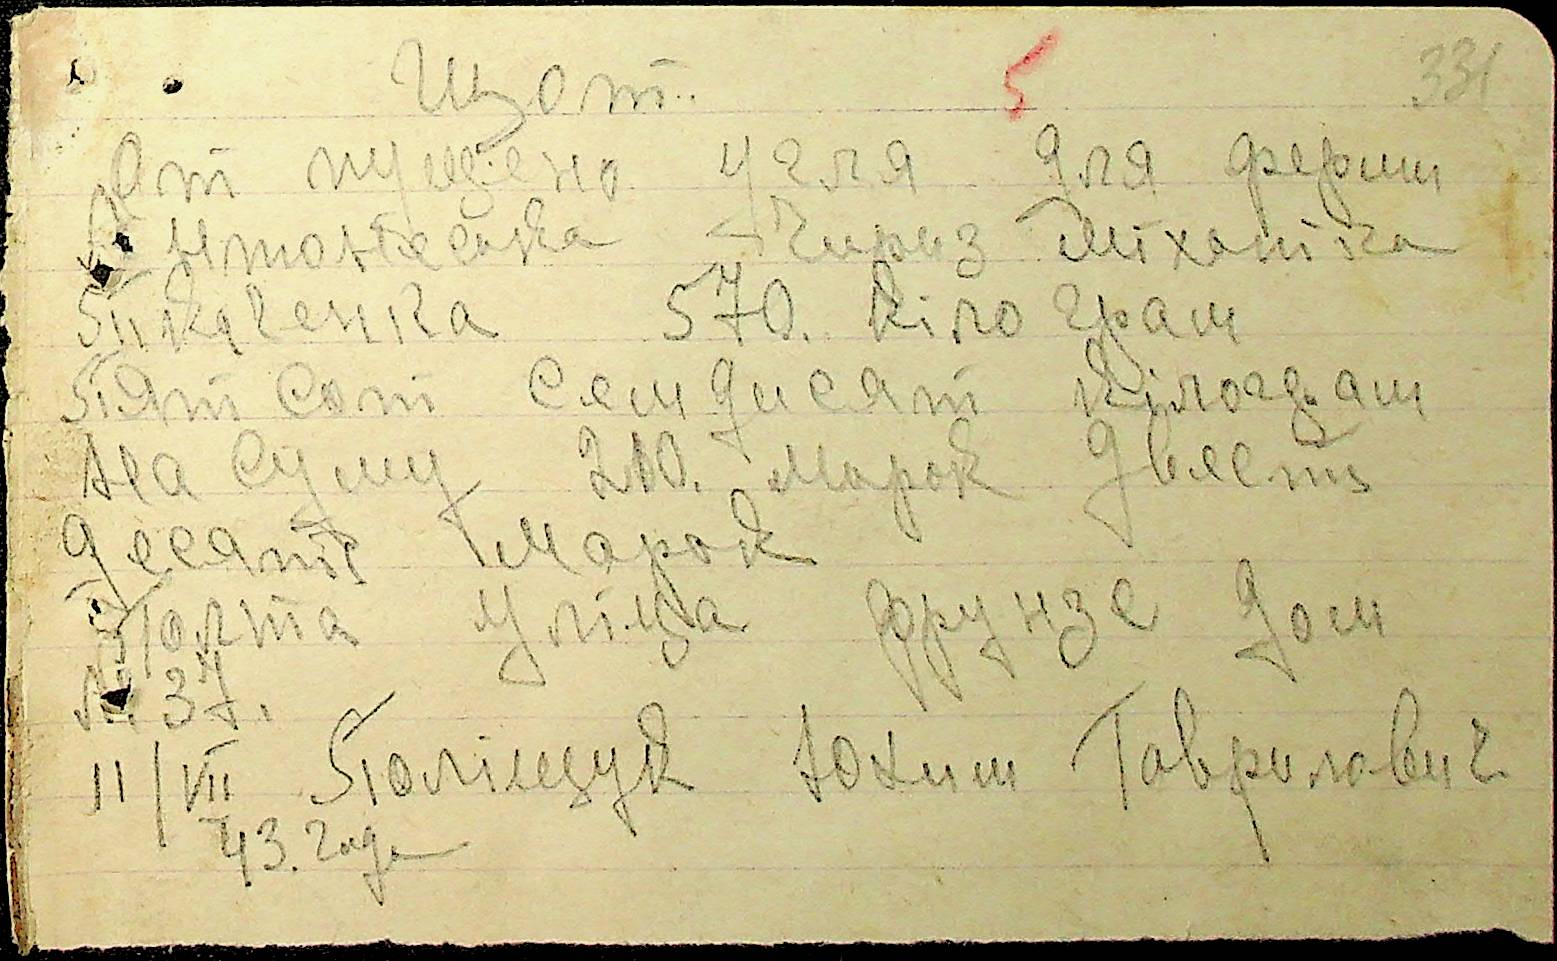 Щот.. 5 331
От пущено угля для ферми
Антонівка Чириз Міханіка
570. Кілограм
Пят Сот Семдисят Кілограм
На Суму 210. Марок Двести
десять Марок
Уліца Фрунзе Дом
№ 37.
11/VII Поліщук Юхим Гаврилович
43. года